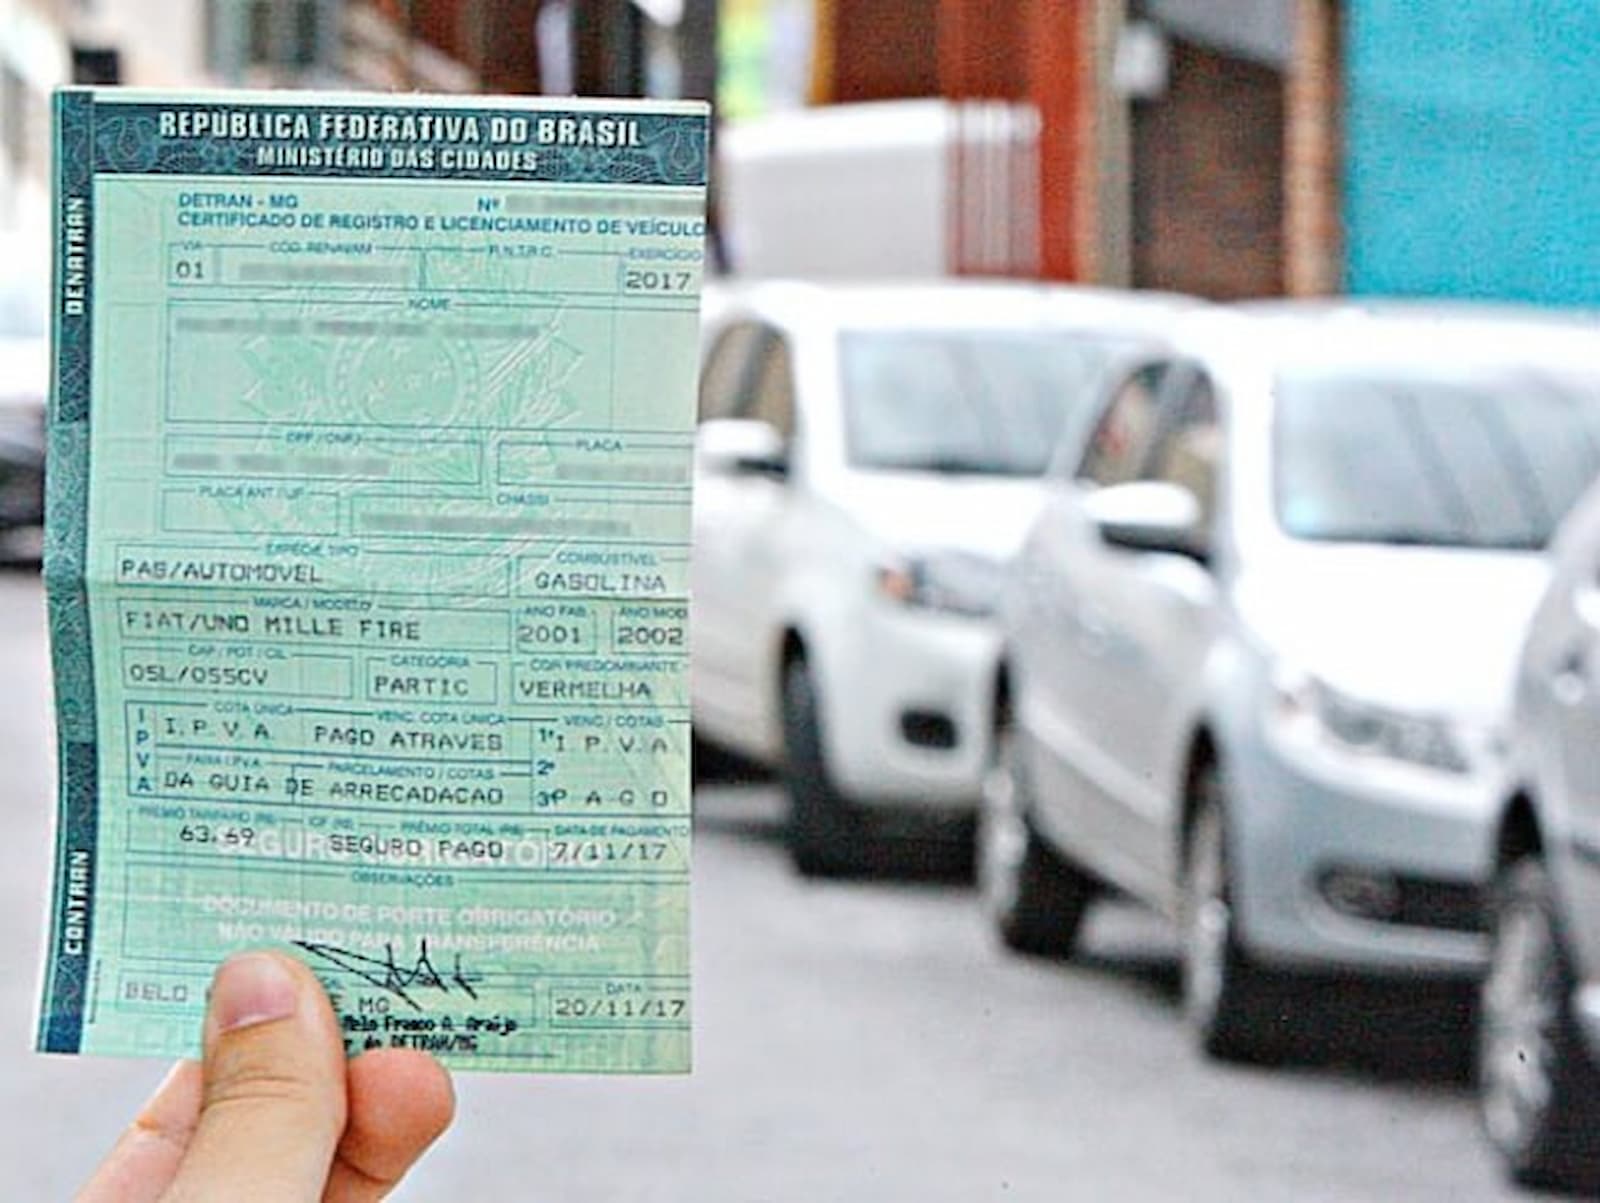 REPÚBLICA FEDERATIVA DO BRASIL
MINISTÉRIO DAS CIDADES
DENATRAN
CONTRAN
DETRAN - MG Nº
CERTIFICADO DE REGISTRO E LICENCIAMENTO DE VEÍCULO
VIA CÓD. RENAVAM R.N.T.R.C. EXERCÍCIO
01 2017
NOME
CPF / CNPJ PLACA
PLACA ANT / UF CHASSI
ESPÉCIE TIPO COMBUSTÍVEL
PAS/AUTOMOVEL GASOLINA
MARCA / MODELO ANO FAB. ANO MOD
FIAT/UNO MILLE FIRE 2001 2002
CAP / POT / CIL CATEGORIA COR PREDOMINANTE
05L/055CV PARTIC VERMELHA
IPVA
COTA ÚNICA VENC. COTA ÚNICA VENC / COTAS
I.P.V.A PAGO ATRAVES 1ª I P.V.A
FAIXA I.P.V.A. PARCELAMENTO / COTAS 2ª
DA GUIA DE ARRECADACAO 3ª P A G O
PRÊMIO TARIFÁRIO (R$) IOF (R$) PRÊMIO TOTAL (R$) DATA DE PAGAMENTO
63.69 SEGURO PAGO 7/11/17
SEGURO OBRIGATÓRIO
OBSERVAÇÕES
DOCUMENTO DE PORTE OBRIGATÓRIO
NÃO VÁLIDO PARA TRANSFERÊNCIA
DATA
BELO E MG 20/11/17
Melo Franco A. Araújo
DETRAN/MG